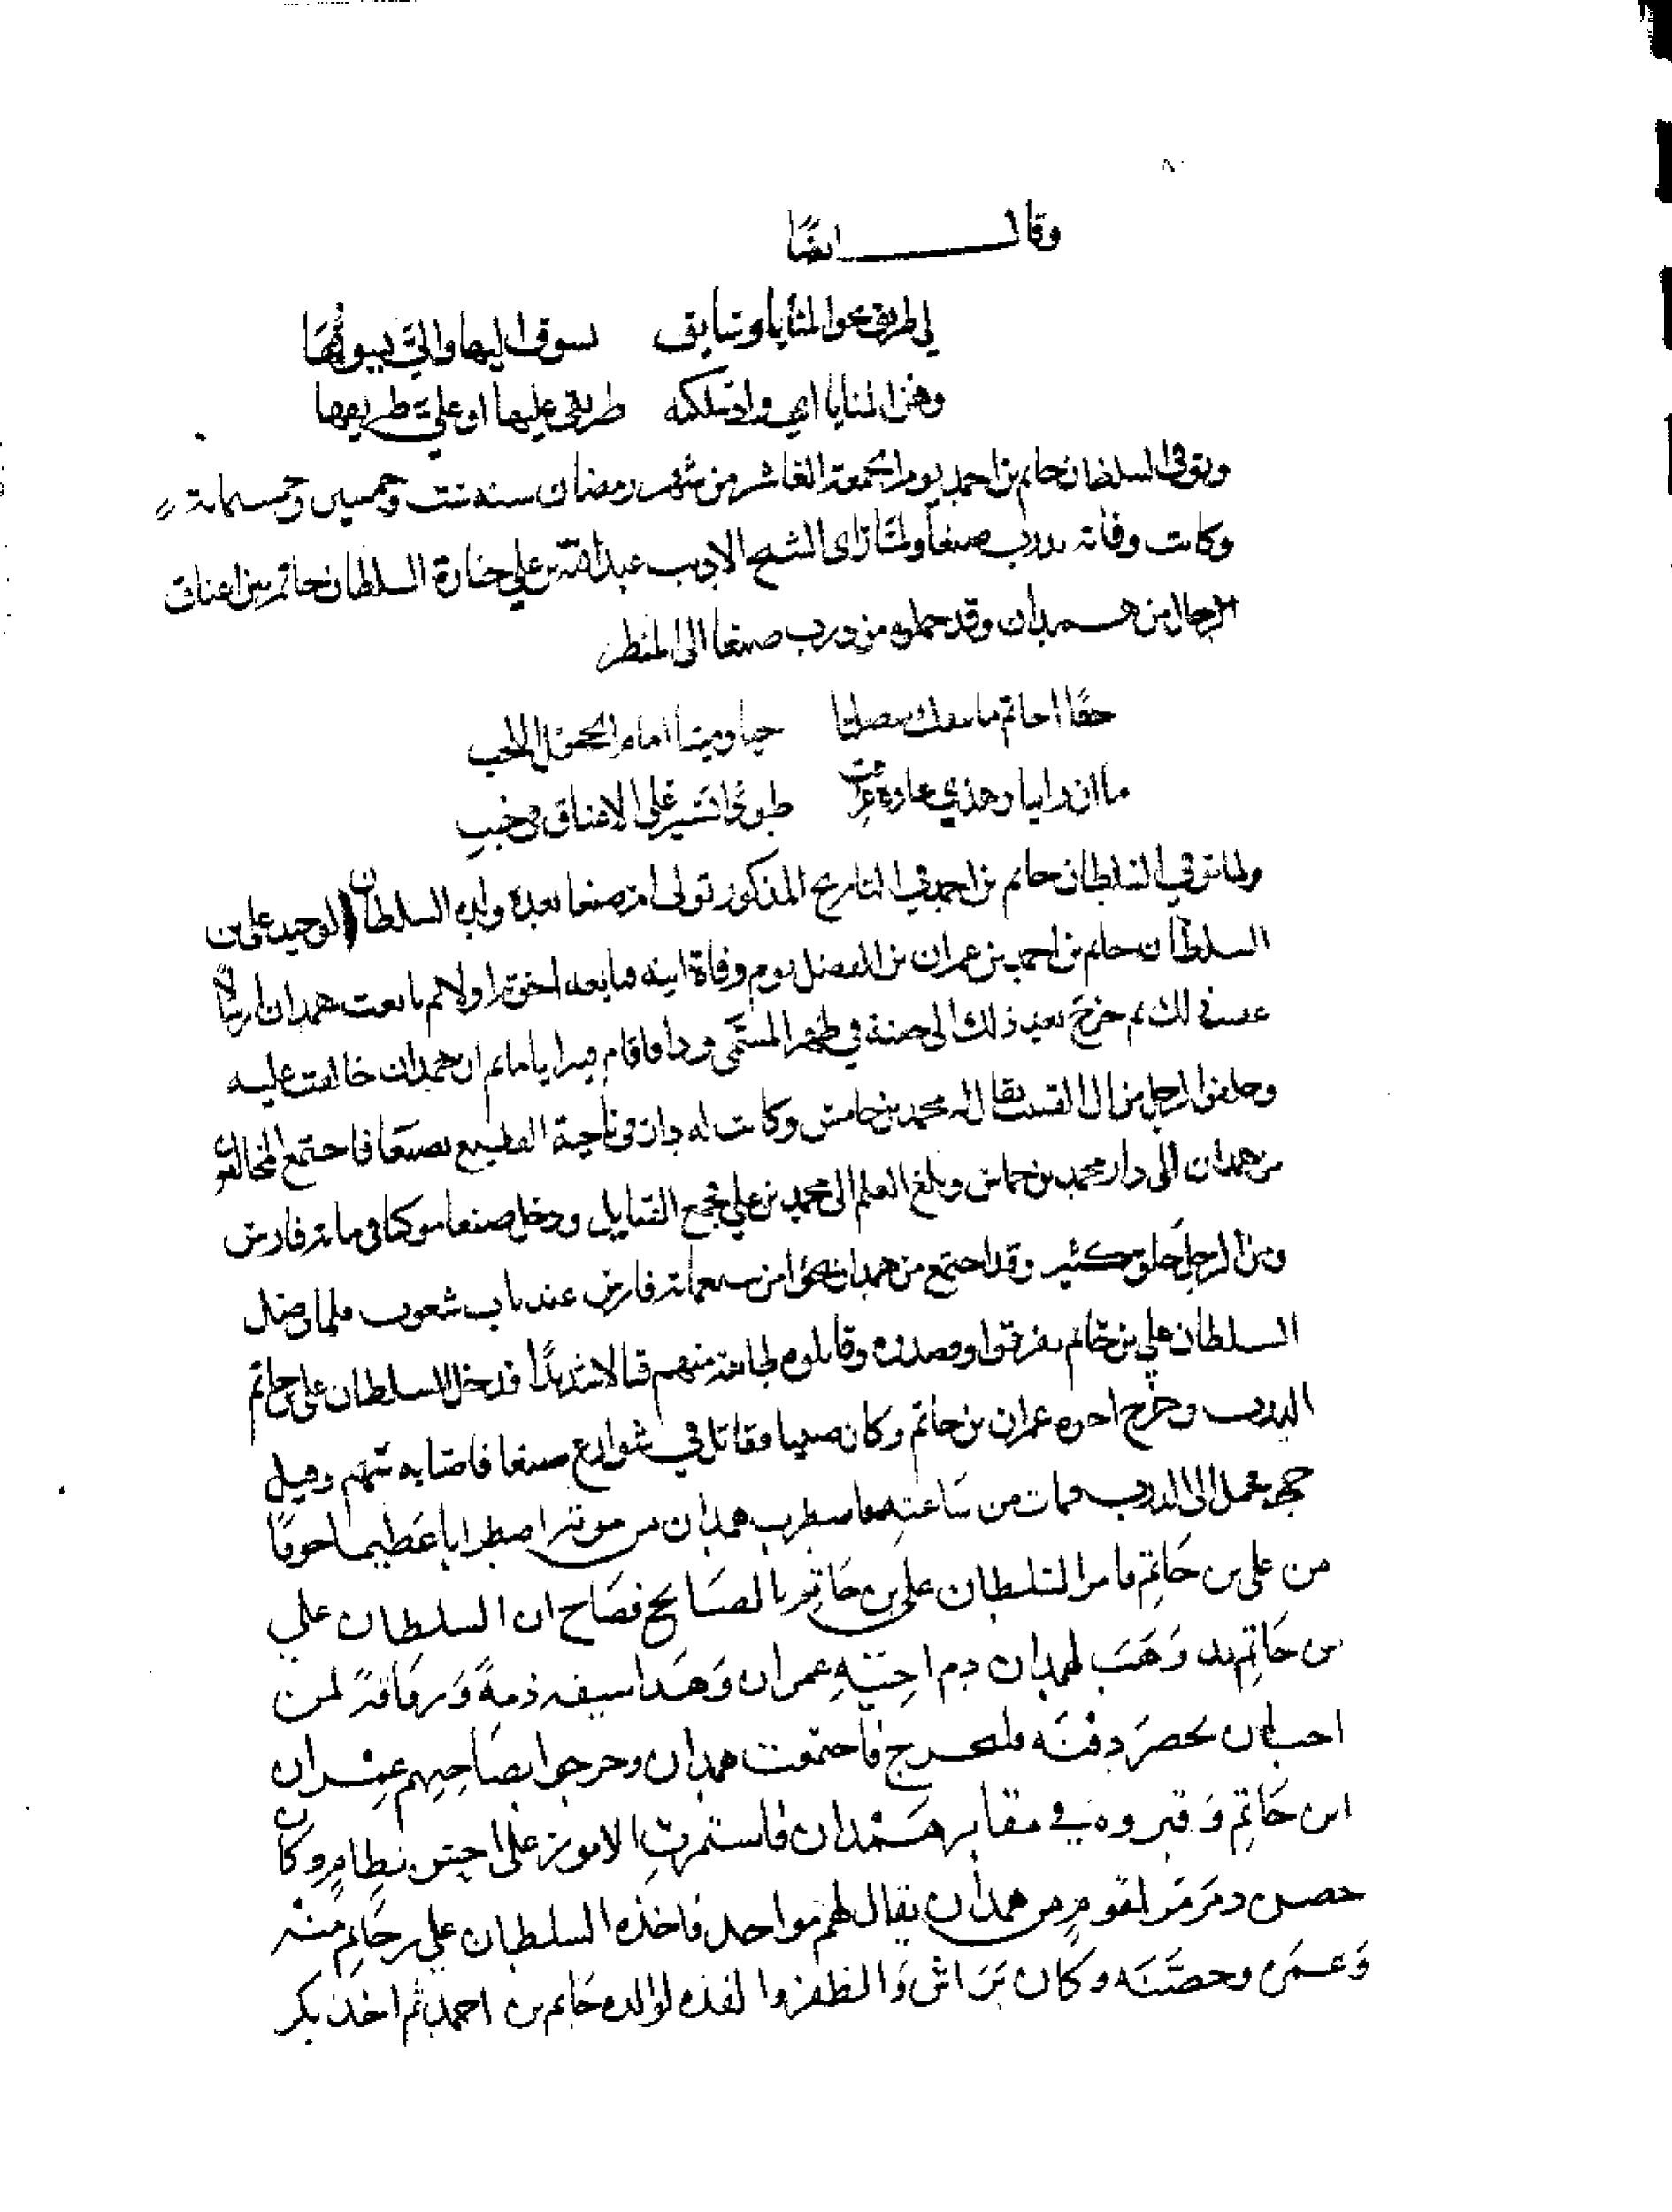 وقال ايضًا
نحو المنايا وسابق يسوق اليها والىّ يسوقها
المنايا طريقي عليها او علىّ طريقها
وتوفى السلطان حاتم بن احمد يوم الجمعة العاشر من شهر رمضان سنه ست وخمسين وخمسماية
وكانت وفاته بدرب صنعا ولما راى الشيخ الاديب عبدالله بن علي جنازة السلطان حاتم بين اعناق
الرجال من همدان وقد حملوه من درب صنعا الى المنظر
حقًا احاتم حيا وميتا امام الجحفل اللجب
ما ان راينا وهذي عادة طودًا تسير على الاعناق في خبب
ولما توفي السلطان حاتم بن احمد في التاريخ المذكور تولى امر صنعا بعده ولده السلطان الوحيد على بن
السلطان حاتم بن احمد بن عمران بن المفضل يوم وفاة ابيه فبايعه اخوته اولا ثم بايعت همدان ارسالًا
عقب ذلك ثم خرج بعد ذلك الى حصنه في ظهر المسمى فاقام فيه اياما ثم ان همدان خالفت عليه
وحلفوا لرجل من ال القبيب يقال له محمد بن حامس وكانت له دار في ناحية القطيع بصنعا فاجتمع المخالفون
من همدان الى دار محمد بن حماس وبلغ العلم الى محمد بن علي فجمع القبايل ودخل صنعا في ماية فارس
ومن الرجل خلق كثير وقد اجتمع من همدان نحوًا من سبعماية فارس عند باب شعوب فلما وصل
السلطان علي بن حاتم تفرقوا وقصدوه وقابلوه طايفة منهم قتالا شديدًا فدخل السلطان على بن حاتم
الدرب وخرج اخوه عمران بن حاتم وكان صبيا فقاتل في شوارع صنعا فاصابه سهم وقيل
حجر فحمل الى الدرب فمات من ساعته فاضطرب همدان من موته اضطرابا عظيما خوفًا
من على بن حاتم فامر السلطان على بن حاتم بالصايح فصاح ان السلطان علي
بن حاتم قد وهب لهمدان دم اخيه عمران وهذا سيفه ذمةً ورفاقةً لمن
احب ان يحضر دفنه فليخرج فاجتمعت همدان وخرجوا بصاحبهم عمران
ابن حاتم وقبروه في مقابر همدان فاستمرت الامور على احسن نظام وكان
حصن ذمرمر لقوم من همدان يقال لهم مواحد فاخذه السلطان علي بن حاتم منه
وعمره وحصّنه وكان براش والظفر والفده لوالده حاتم بن احمد ثم اخذ بكر